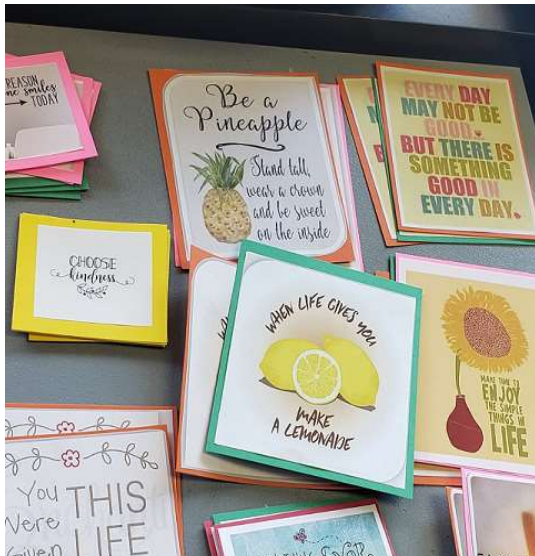 REASON
smiles
TODAY
Be a
Pineapple
Stand tall,
wear a crown
and be sweet
on the inside
EVERY DAY
MAY NOT BE
GOOD.
BUT THERE IS
SOMETHING
GOOD IN
EVERY DAY.
CHOOSE
kindness
WHEN LIFE GIVES YOU
MAKE
A LEMONADE
MAKE TIME TO
ENJOY
THE SIMPLE
THINGS IN
LIFE
You
Were
Given
THIS
LIFE